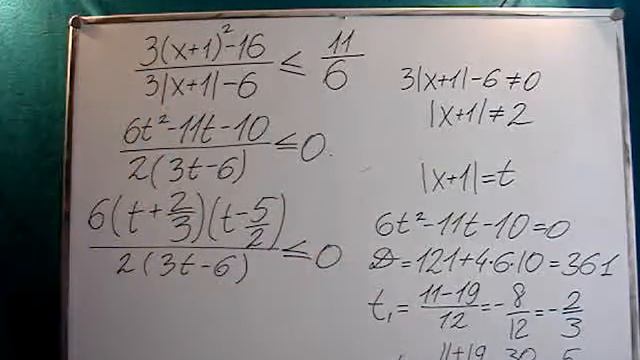 3(x+1)²-16 / 3|x+1|-6 ≤ 11/6
6t²-11t-10 / 2(3t-6) ≤ 0.
6(t+2/3)(t-5/2) / 2(3t-6) ≤ 0
3|x+1|-6≠0
|x+1|≠2
|x+1|=t
6t²-11t-10=0
D=121+4·6·10=361
t₁=11-19/12=-8/12=-2/3